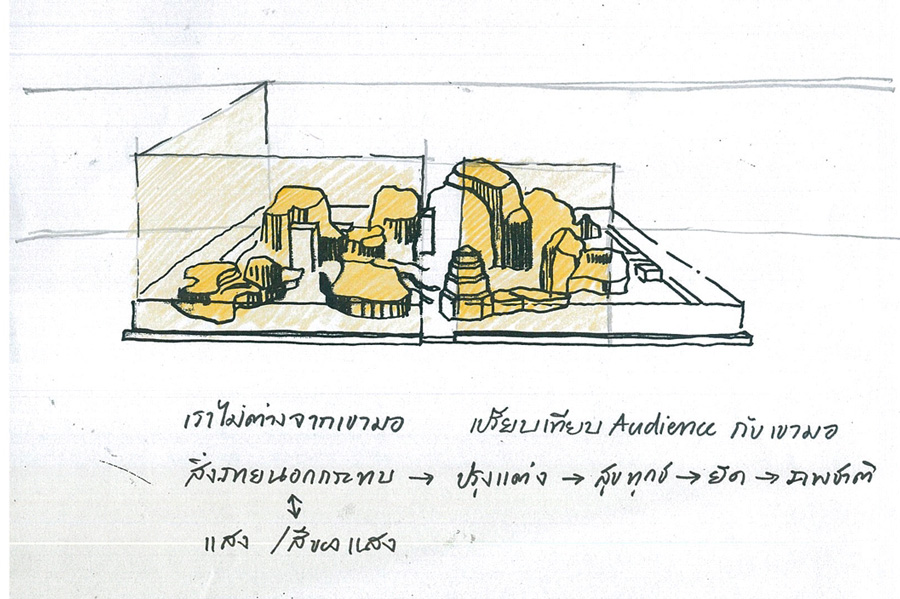 เราไม่ต่างจากเขามอ
เปรียบเทียบ Audience กับ เขามอ
สิ่งภายนอกกระทบ → ปรุงแต่ง → สุขทุกข์ → ยึด → ภพชาติ
↕
แสง / สีของแสง